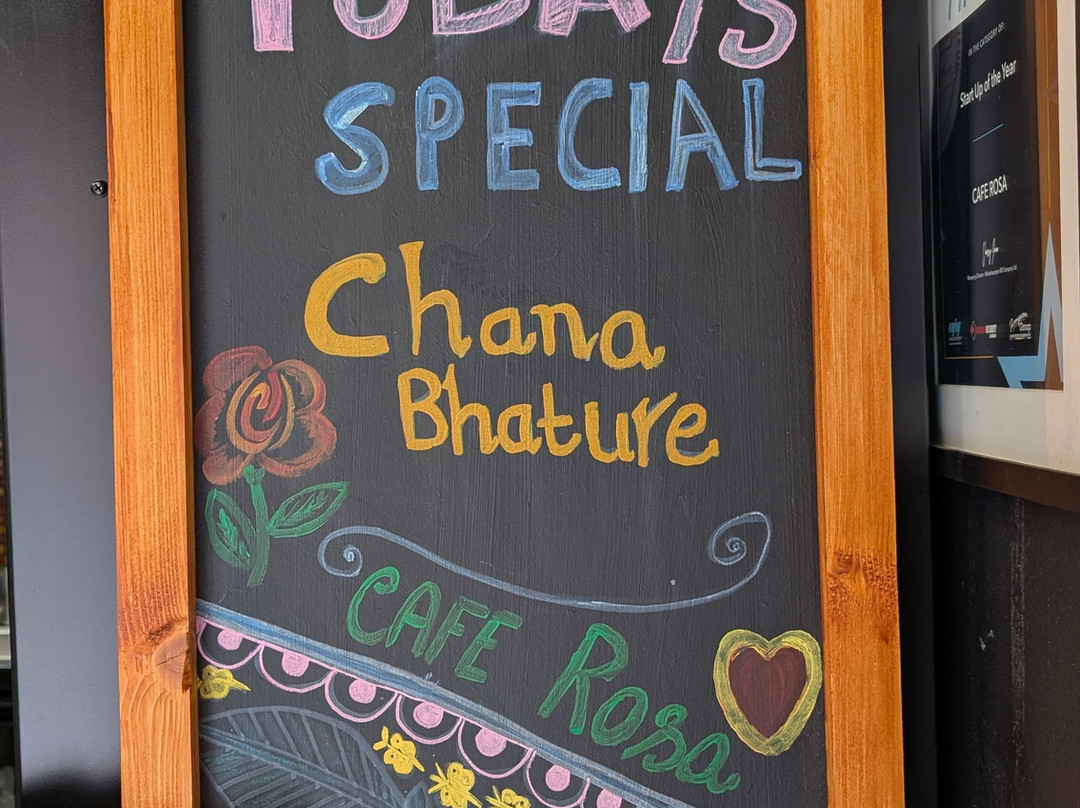 TODAYS
SPECIAL
Chana
Bhature
CAFE Rosa
IN THE CATEGORY OF:
Start Up of the Year
CAFE ROSA